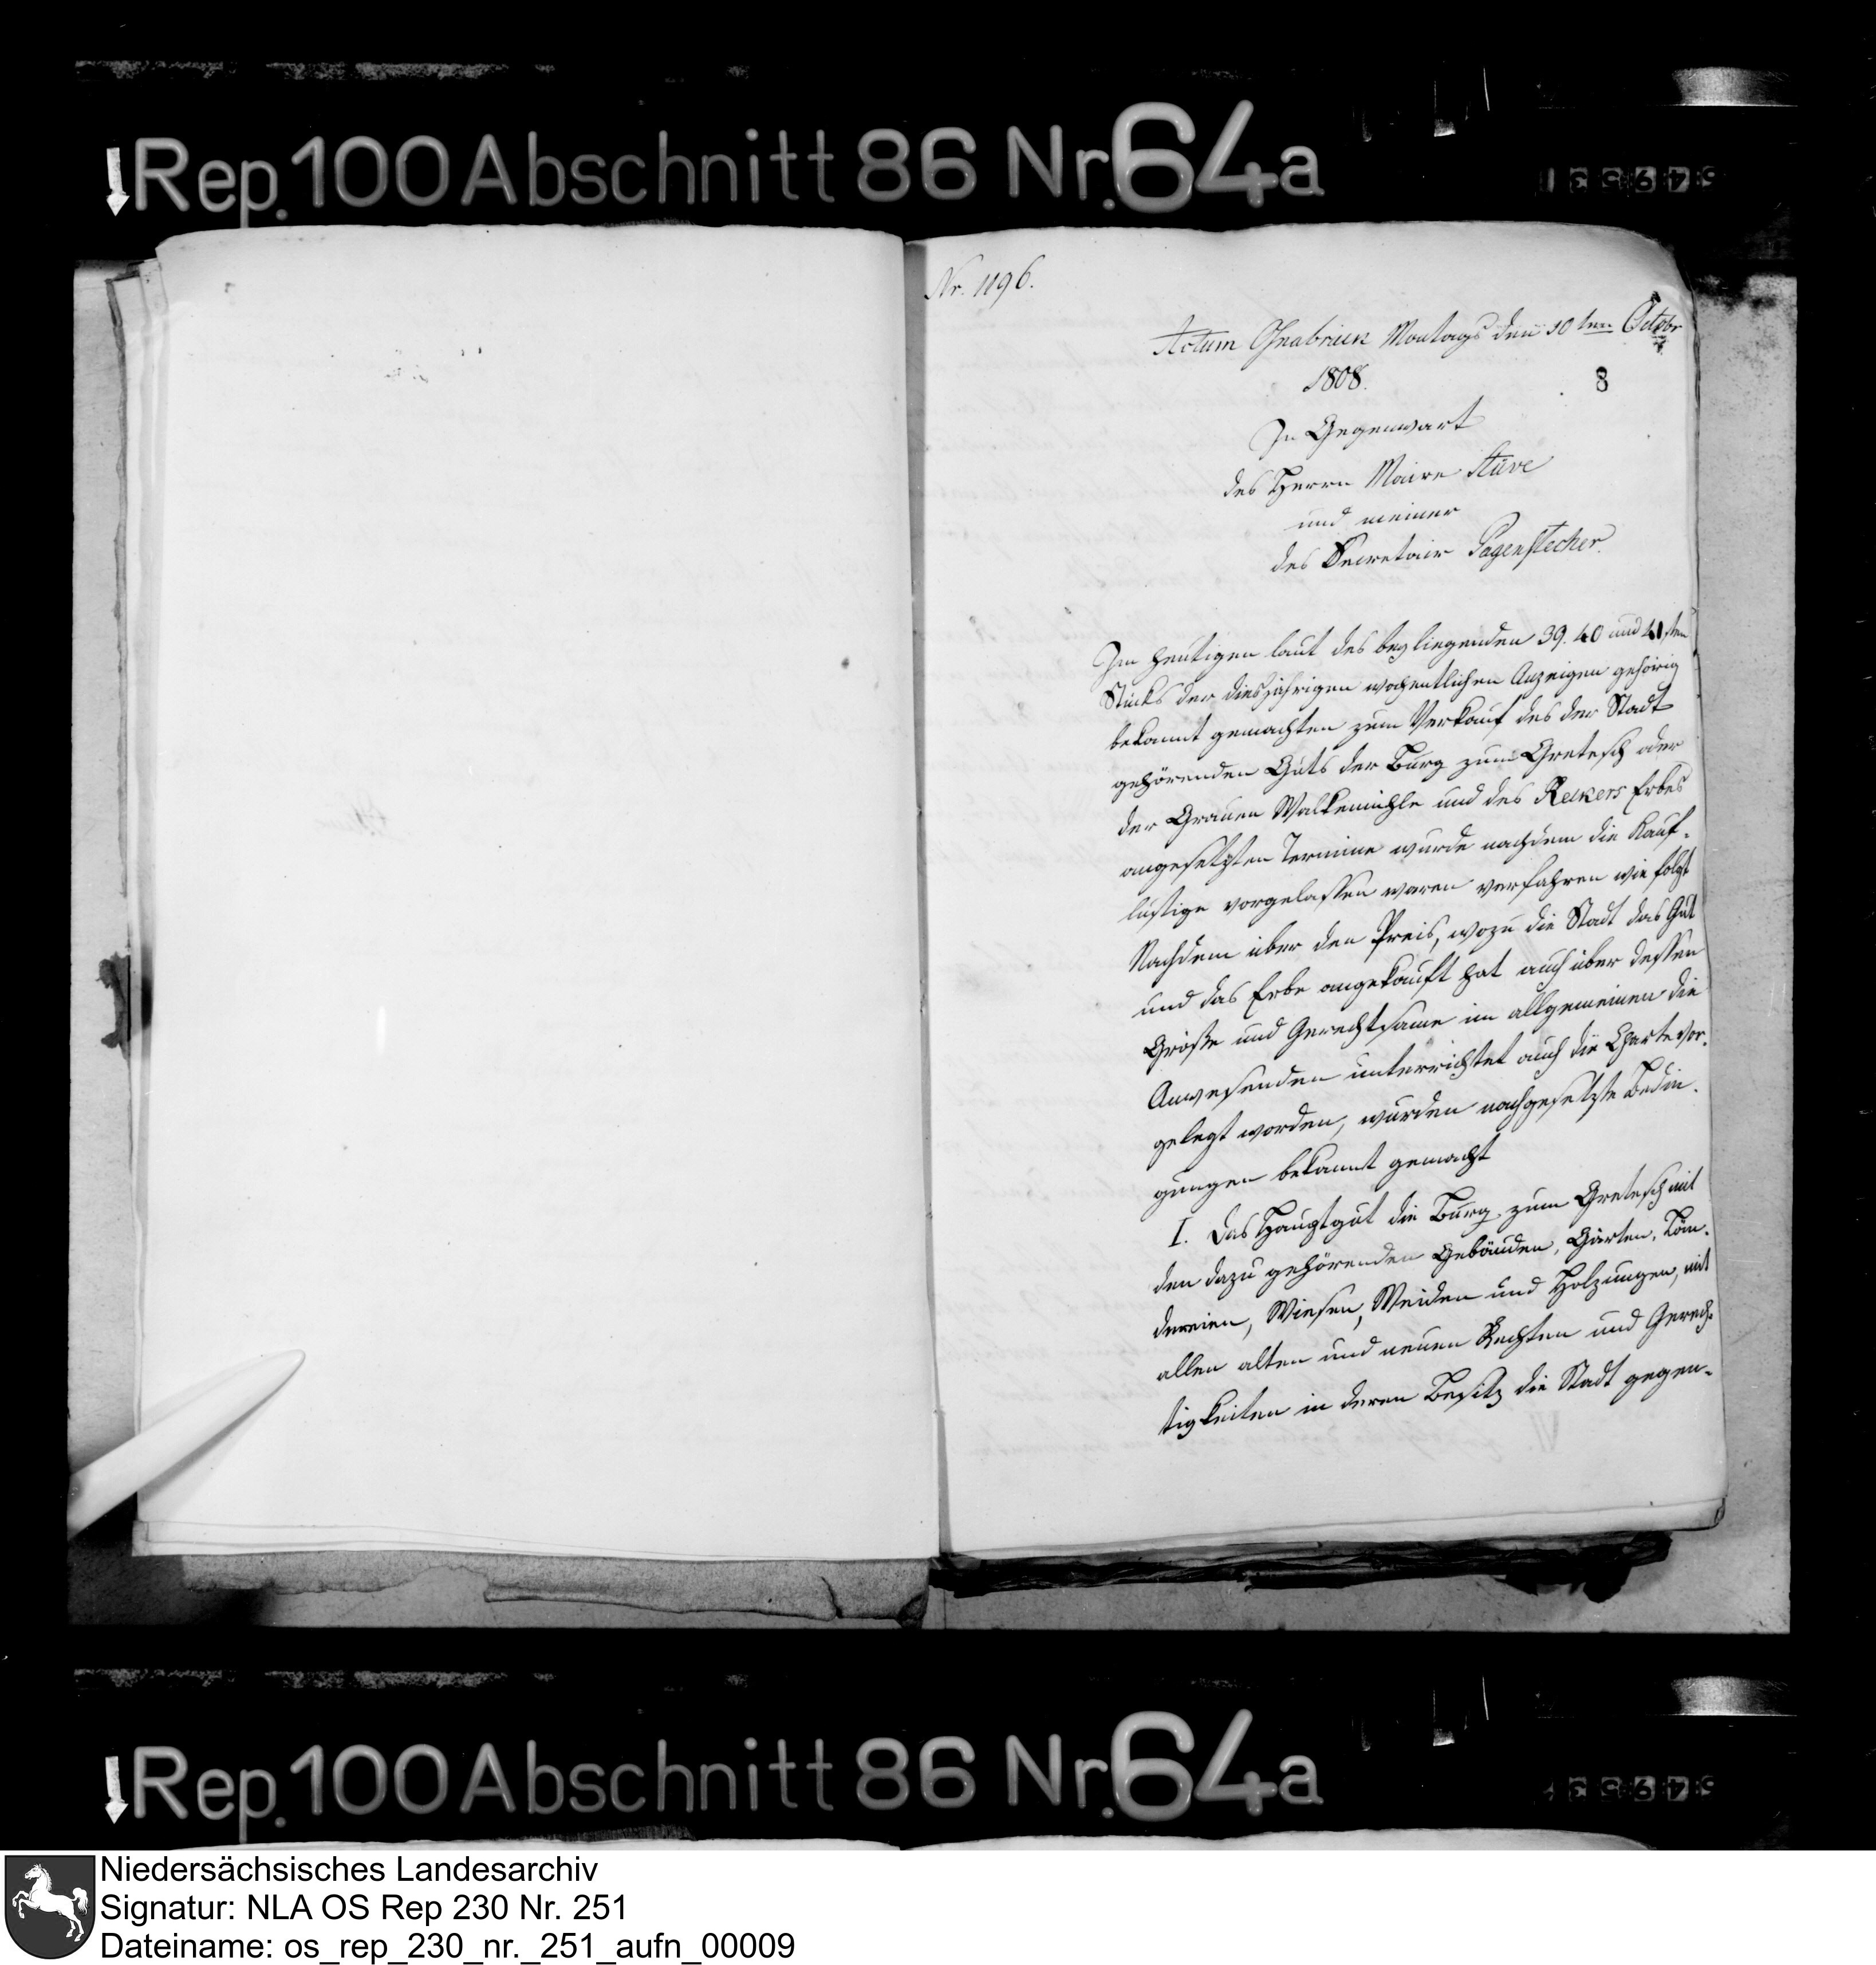 Rep. 100 Abschnitt 86 Nr. 64a
Nr. 1196.
Actum Osnabrück Montags den 10ten Octobr
1808.
8
In Gegenwart
des Herrn Maire Stüve
und meiner
des Secretair Pagenstecher.
Im heutigen laut des beyliegenden 39. 40 und 41sten
Stücks der diesjährigen wochentlichen Anzeigen gehörig
bekannt gemachten zum Verkauf des der Stadt
gehörenden Guts der Burg zum Gretesch oder
der Grauen Walkemühle und des Rekers Erbes
angesetzten Termine wurde nachdem die Kauf-
lustige vorgelassen waren verfahren wie folgt
Nachdem über den Preis, wozu die Stadt das Gut
und das Erbe angekauft hat auch über dessen
Größe und Gerechtsame im allgemeinen die
Anwesenden unterrichtet auch die Charte vor-
gelegt worden, wurden nachgesetzte Bedin-
gungen bekannt gemacht
I. Das Hauptgut die Burg zum Gretesch mit
den dazu gehörenden Gebäuden, Gärten, Län-
dereien, Wiesen, Weiden und Holzungen, mit
allen alten und neuen Rechten und Gerech-
tigkeiten in deren Besitz die Stadt gegen-
Rep. 100 Abschnitt 86 Nr. 64a
Niedersächsisches Landesarchiv
Signatur: NLA OS Rep 230 Nr. 251
Dateiname: os_rep_230_nr._251_aufn_00009